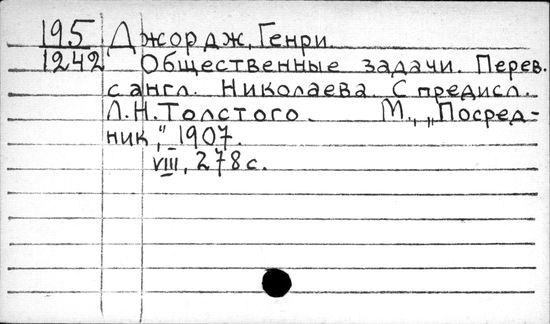 195 Джордж, Генри.
1242 Общественные задачи. Перев.
с англ. Николаева. С предисл.
Л.Н.Толстого. М., „Посред-
ник," 1907.
VIII, 278 с.